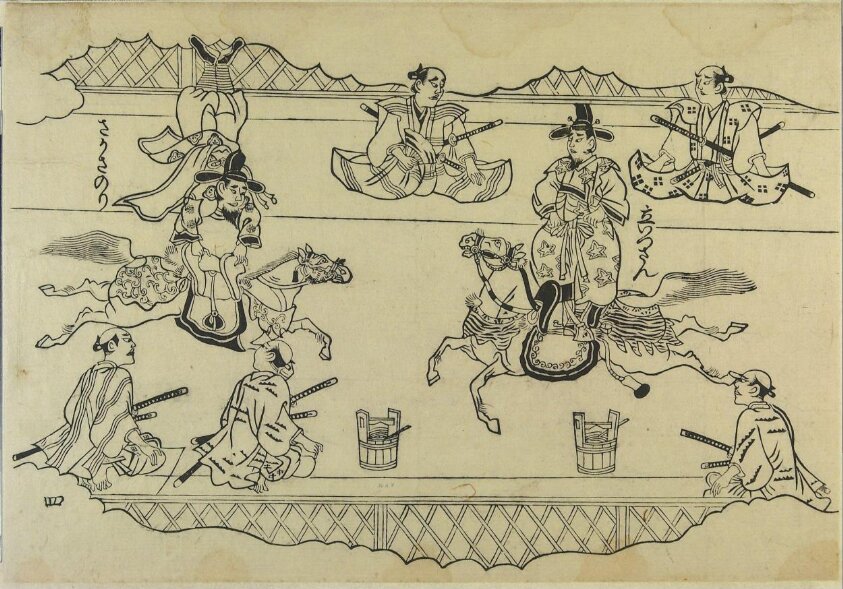 立いつさん
さかさのり
四